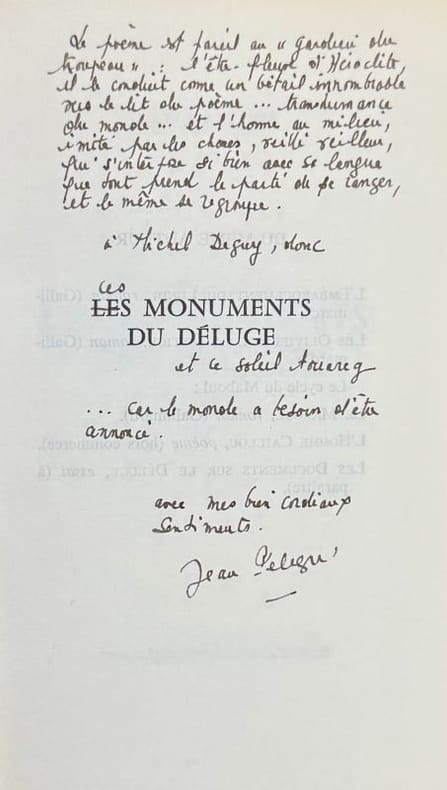 Le poème est pareil au " gardien du
troupeau " : l'être-fleuve d'Héraclite,
il le conduit comme un bétail innombrable
vers le lit du poème ... transhumance
du monde ... et l'homme au milieu,
imité par les choses, veillé veilleur,
qui s'interpose si bien avec sa langue
que tout prend le parti de se ranger,
et le même se regroupe.
à Michel Deguy, donc
ces
LES MONUMENTS
DU DÉLUGE
et ce soleil touareg
... car le monde a besoin d'être
annoncé.
avec mes bien cordiaux
sentiments.
Jean Pélégri